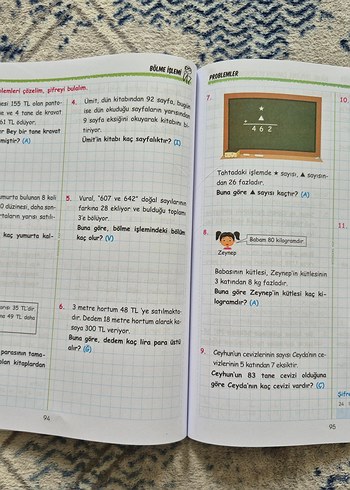 BÖLME İŞLEMİ
lemleri çözelim, şifreyi bulalım.
esi 155 TL olan panto-
ne ve 4 tane de kravat
61 TL ödüyor.
r Bey bir tane kravat
miştir? (A)
yumurta bulunan 8 koli
0 düzinesi, daha son-
rtaların yarısı satılı-
kaç yumurta kal-
arısı 35 TL'dir.
na 49 TL daha
parasının tama-
olan kitaplardan
4. Ümit, dün kitabından 92 sayfa, bugün
ise dün okuduğu sayfaların yarısından
9 sayfa eksiğini okuyarak kitabını bi-
tiriyor.
Ümit'in kitabı kaç sayfalıktır? (İ)
5. Vural, "607 ve 642" doğal sayılarının
farkına 28 ekliyor ve bulduğu toplamı
3'e bölüyor.
Buna göre, bölme işlemindeki bölüm
kaç olur? (V)
6. 3 metre hortum 48 TL'ye satılmakta-
dır. Dedem 18 metre hortum alarak ka-
saya 300 TL veriyor.
Buna göre, dedem kaç lira para üstü
alır? (Ğ)
94
PROBLEMLER
7.
★
▲
+
4 6 2
Tahtadaki işlemde ★ sayısı, ▲ sayısın-
dan 26 fazladır.
Buna göre ▲ sayısı kaçtır? (A)
8.
Babam 80 kilogramdır.
Zeynep
Babasının kütlesi, Zeynep'in kütlesinin
3 katından 8 kg fazladır.
Buna göre Zeynep'in kütlesi kaç ki-
logramdır? (A)
9. Ceyhun'un cevizlerinin sayısı Ceyda'nın ce-
vizlerinin 5 katından 7 eksiktir.
Ceyhun'un 83 tane cevizi olduğuna
göre Ceyda'nın kaç cevizi vardır? (Ç)
10.
11.
Şifre
95